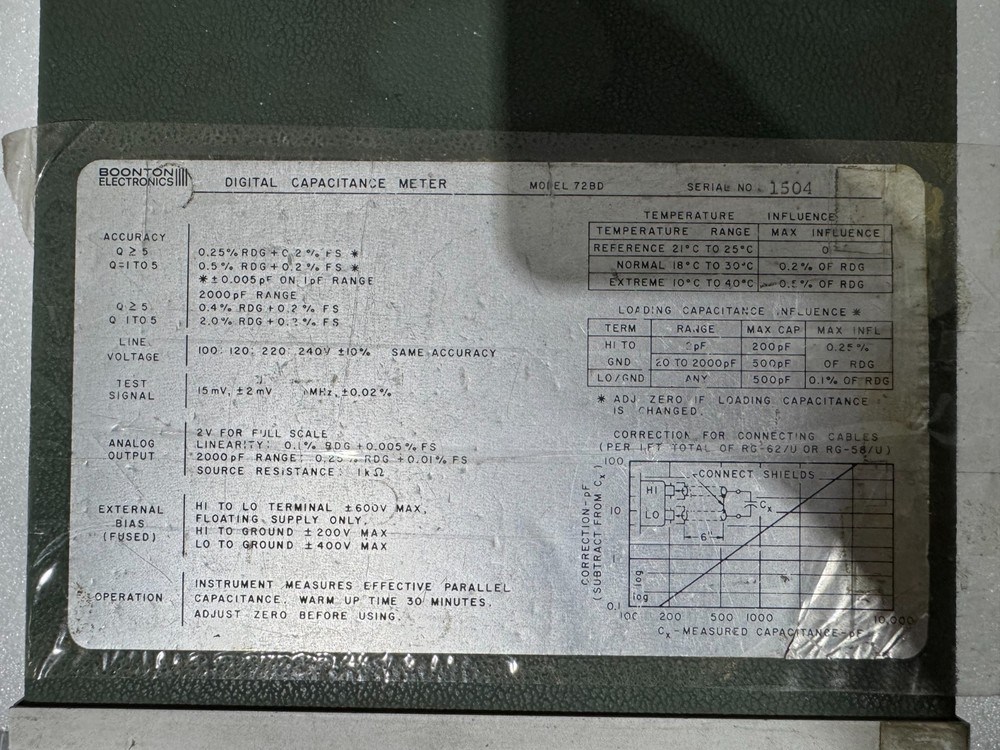 BOONTON
ELECTRONICS
DIGITAL CAPACITANCE METER
MODEL 72BD
SERIAL NO. 1504
ACCURACY
Q ≥ 5 0.25% RDG + 0.2% FS *
Q=1 TO 5 0.5% RDG + 0.2% FS *
* ± 0.005pF ON 1pF RANGE
2000pF RANGE
Q ≥ 5 0.4% RDG + 0.2% FS
Q 1TO 5 2.0% RDG + 0.% FS
LINE
VOLTAGE
100, 120, 220, 240V ±10% SAME ACCURACY
TEST
SIGNAL
15mV, ±2mV MHz, ±0.02%
ANALOG
OUTPUT
2V FOR FULL SCALE
LINEARITY: 0.1% RDG +0.005% FS
2000pF RANGE: RDG +0.01% FS
SOURCE RESISTANCE: 1kΩ
EXTERNAL
BIAS
(FUSED)
HI TO LO TERMINAL ±600V MAX,
FLOATING SUPPLY ONLY.
HI TO GROUND ±200V MAX
LO TO GROUND ±400V MAX
OPERATION
INSTRUMENT MEASURES EFFECTIVE PARALLEL
CAPACITANCE. WARM UP TIME 30 MINUTES.
ADJUST ZERO BEFORE USING.
TEMPERATURE INFLUENCE
TEMPERATURE RANGE MAX INFLUENCE
REFERENCE 21°C TO 25°C 0
NORMAL 18°C TO 30°C 0.2% OF RDG
EXTREME 10°C TO 40°C 0.5% OF RDG
LOADING CAPACITANCE INFLUENCE *
TERM RANGE MAX CAP MAX INFL
HI TO pF 200pF 0.25%
GND 20 TO 2000pF 500pF OF RDG
LO/GND ANY 500pF 0.1% OF RDG
* ADJ ZERO IF LOADING CAPACITANCE
IS CHANGED.
CORRECTION FOR CONNECTING CABLES
(PER 1FT TOTAL OF RG-62/U OR RG-58/U)
CORRECTION-pF
(SUBTRACT FROM Cx)
100
10
1
0.1
CONNECT SHIELDS
HI
LO
Cx
6"
log
log
100 200 500 1000 10,000
Cx-MEASURED CAPACITANCE-pF